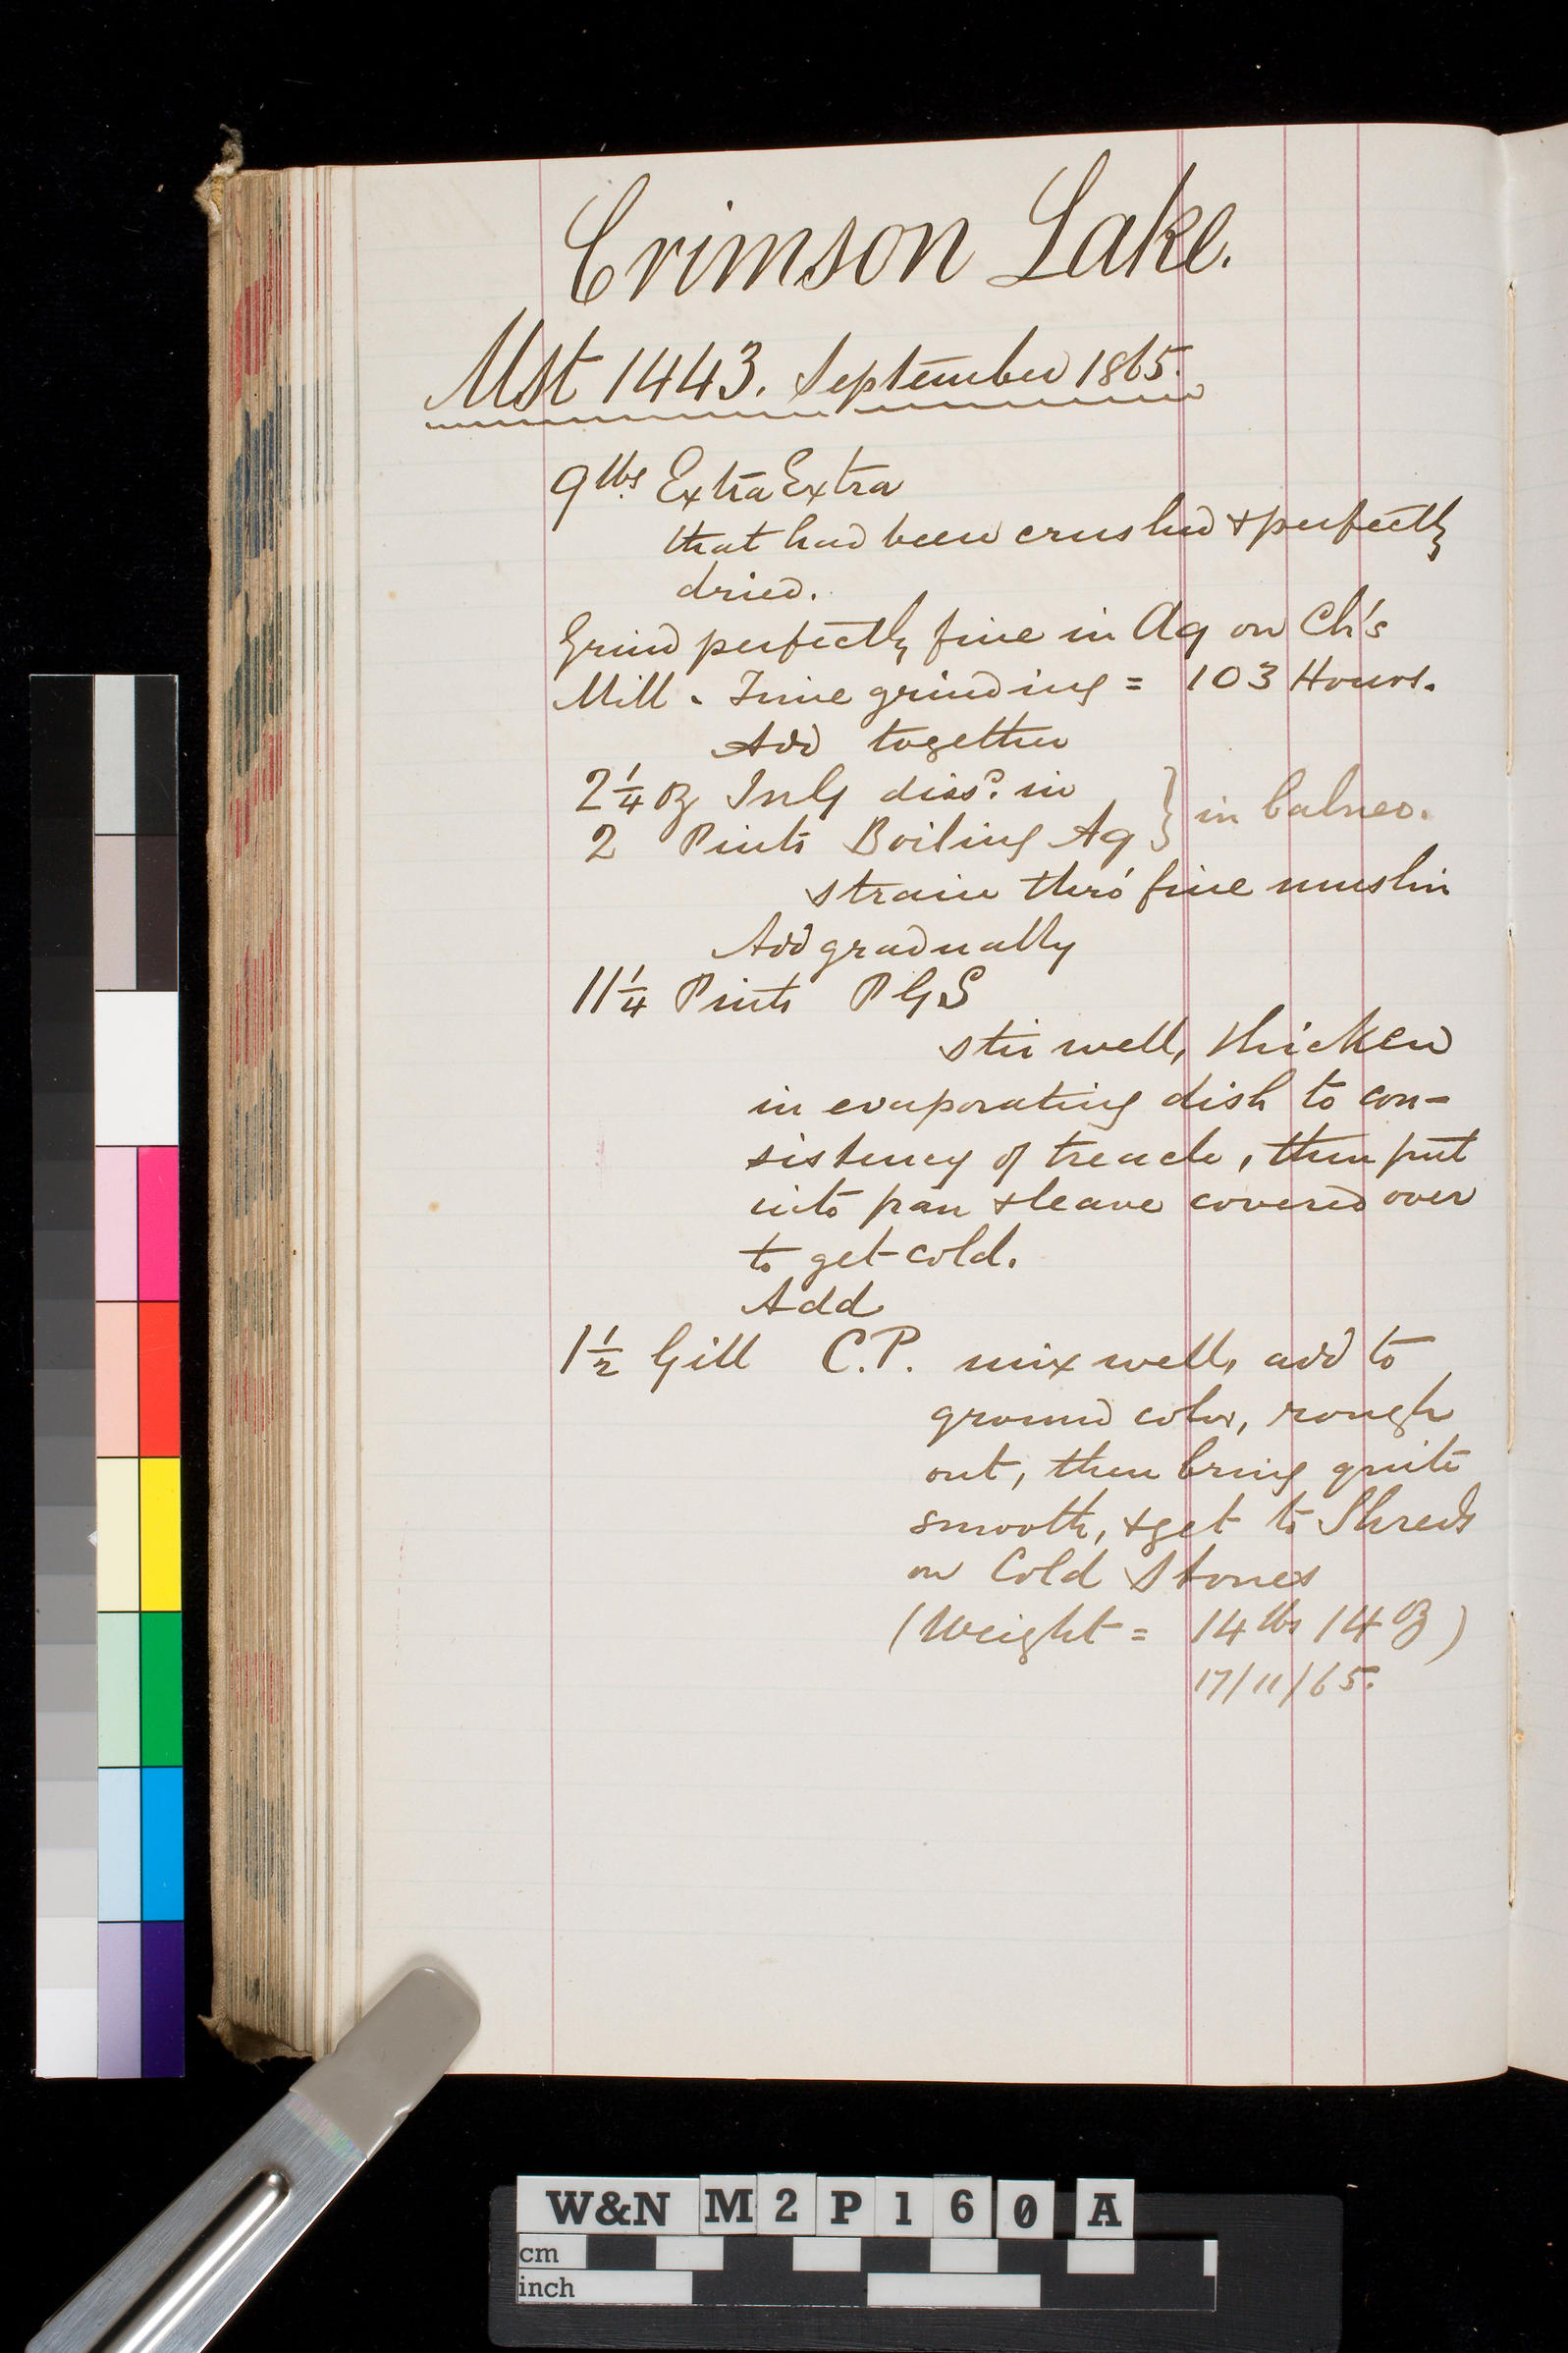 Crimson Lake.
Mst 1443. September 1865.
9 lbs Extra Extra
that had been crushed & perfectly
dried.
Grind perfectly fine in Aq on Ch's
Mill. Time grinding = 103 Hours.
Add together
2 1/4 oz InG diss? in
2 Pints Boiling Aq } in balneo.
strain thro' fine muslin
Add gradually
11 1/4 Pints PGS
stir well, thicken
in evaporating dish to con-
sistency of treacle, then put
into pan & leave covered over
to get cold.
Add
1 1/2 Gill C.P. mix well, add to
ground color, rough
out, then bring quite
smooth, & get to Shreds
on Cold Stones
(Weight = 14 lbs 14 oz)
17/11/65.
W&N M2P160 A
cm
inch